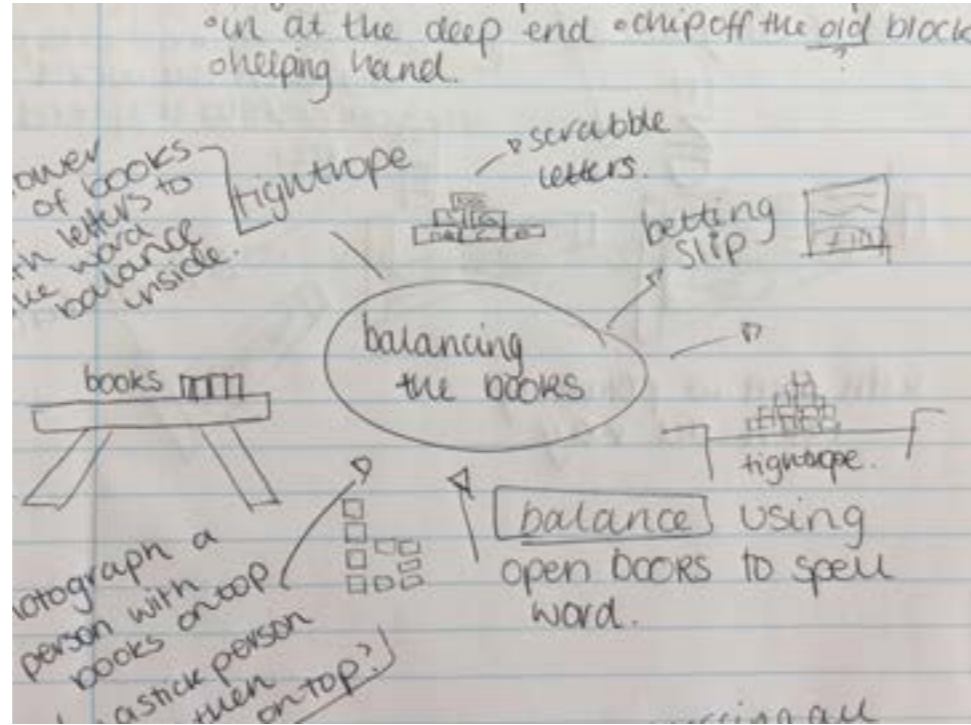 •in at the deep end •chip off the old block
?
•helping hand.
of books
letters to
word
balance
inside.
tightrope
scrabble
letters.
betting
slip
balancing
the books
books
tightrope.
balance using
open books to spell
word.
a
person with
books on top
stick person
then
on top?)